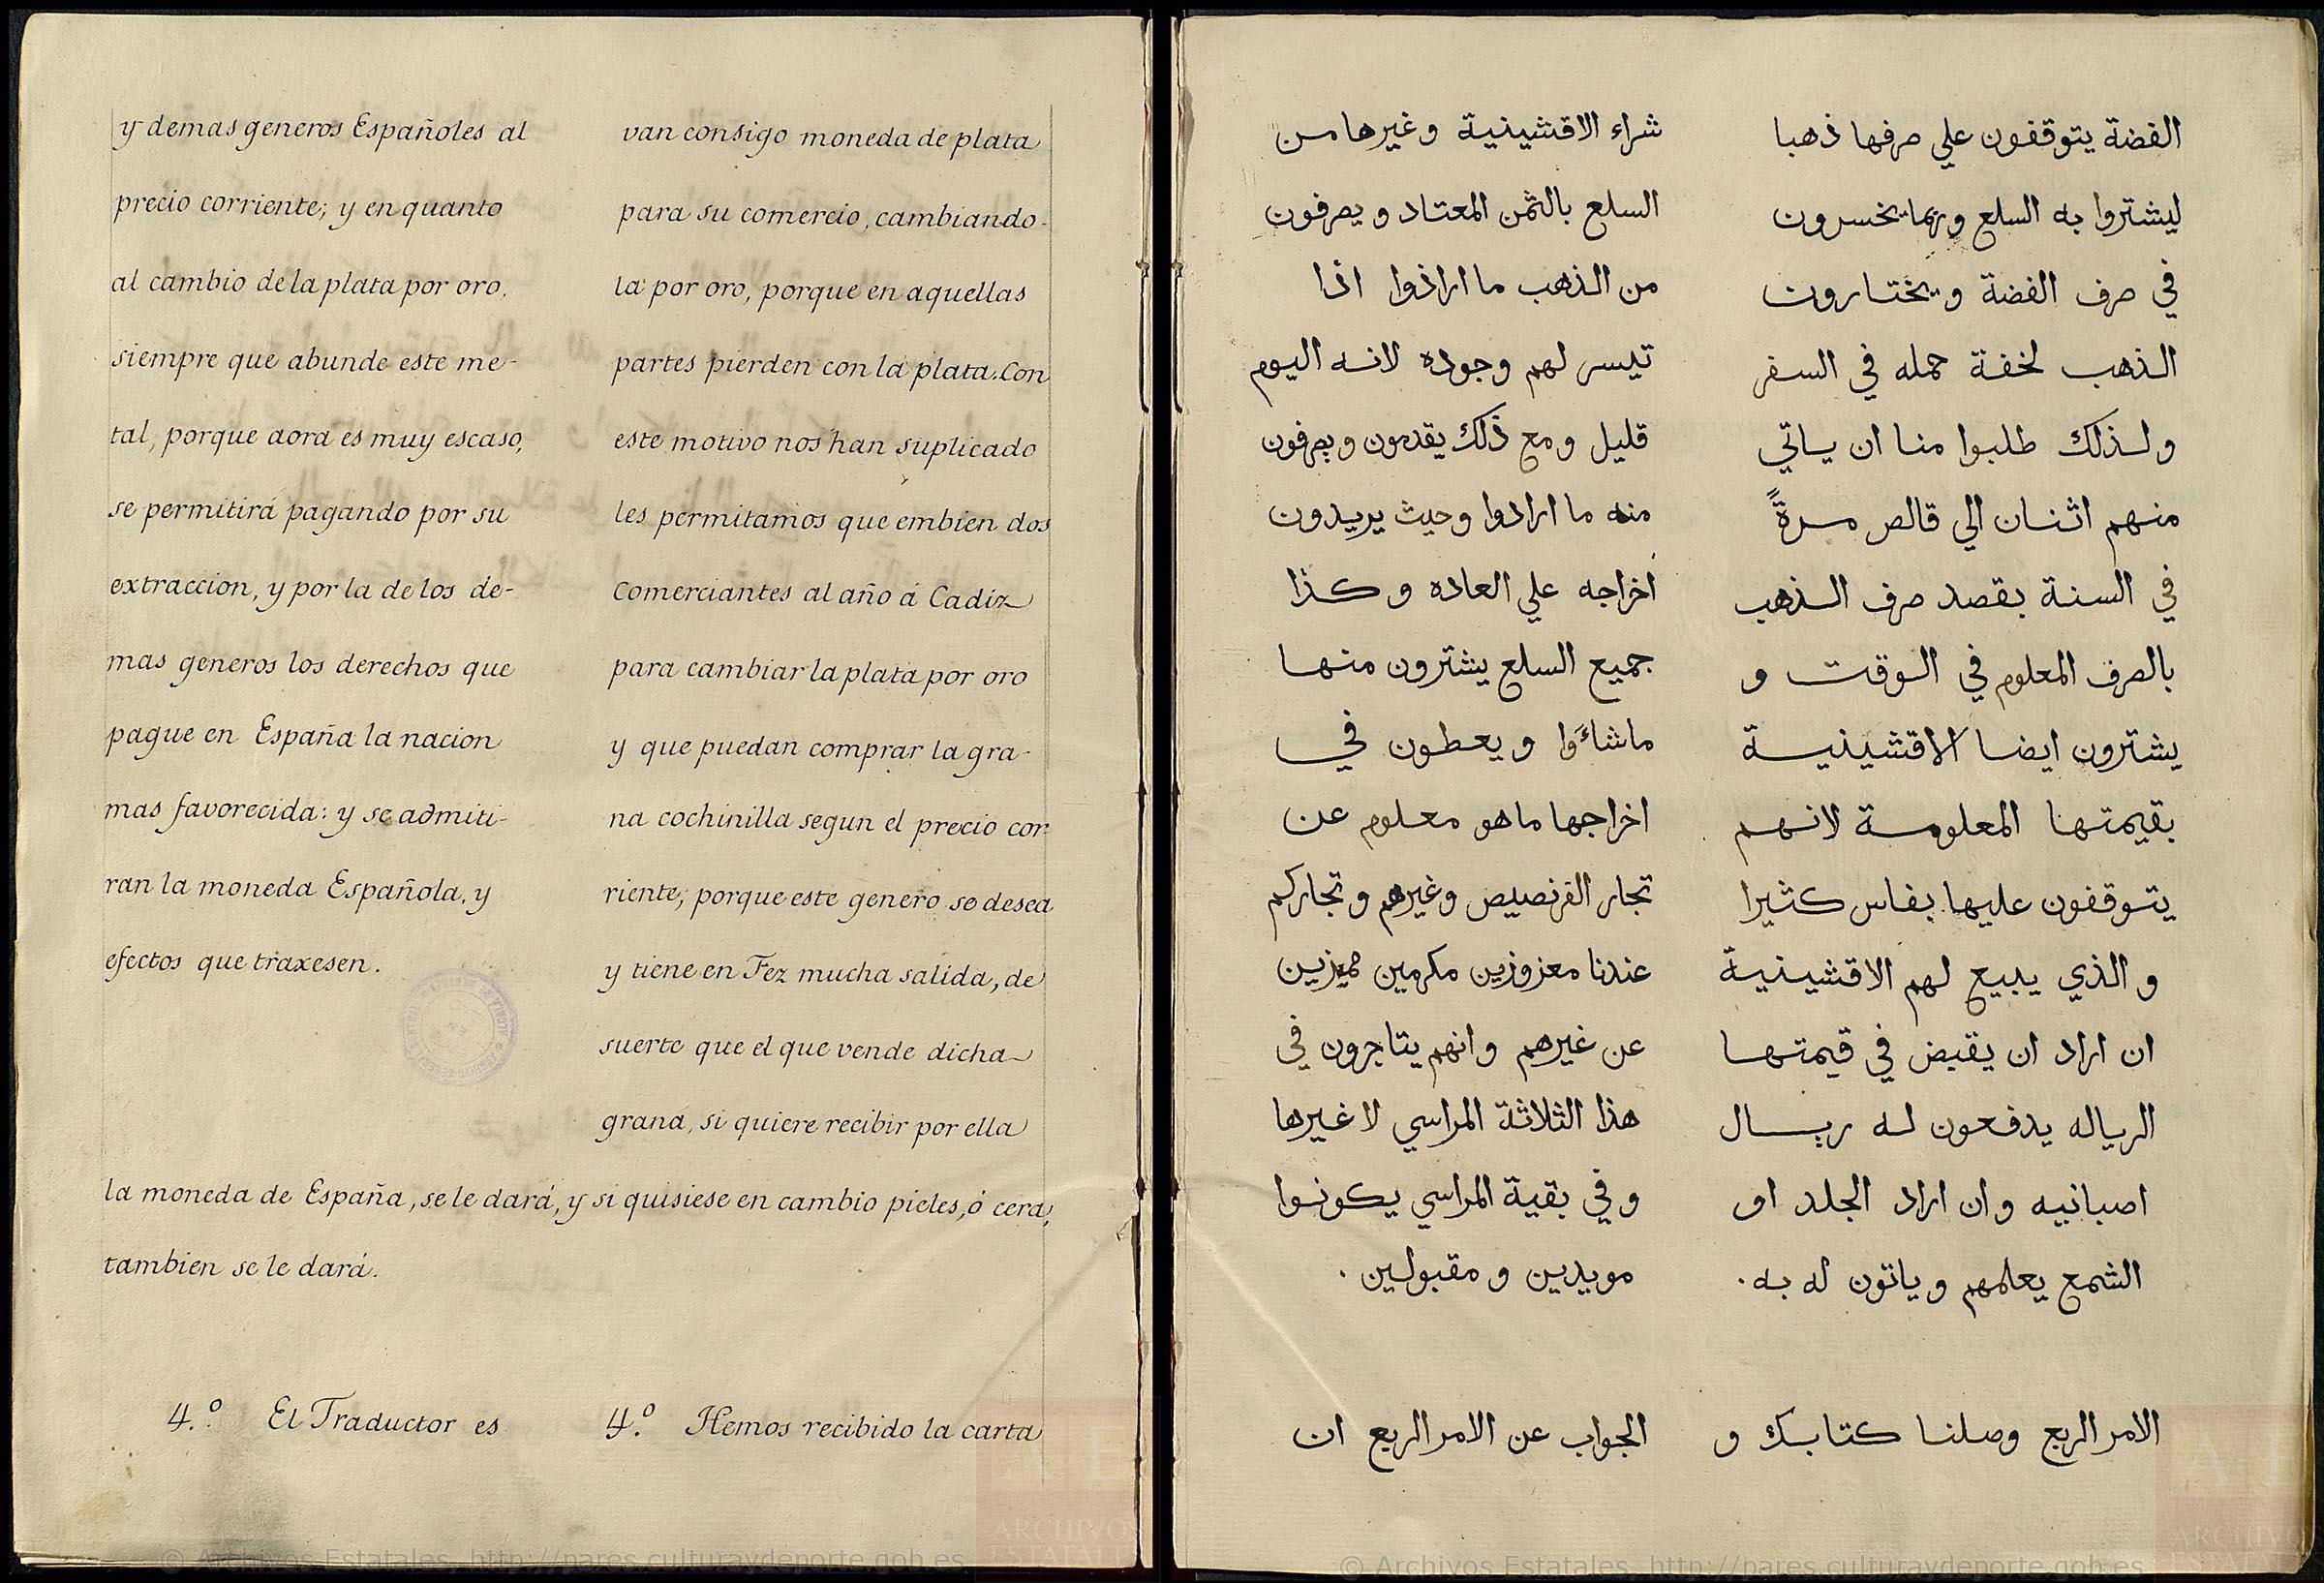 y demas generos Españoles al
precio corriente; y en quanto
al cambio de la plata por oro,
siempre que abunde este me-
tal, porque aora es muy escaso,
se permitirá pagando por su
extraccion, y por la de los de-
mas generos los derechos que
pague en España la nacion
mas favorecida: y se admiti-
ran la moneda Española, y
efectos que traxesen.
van consigo moneda de plata
para su comercio, cambiando-
la por oro, porque en aquellas
partes pierden con la plata. Con
este motivo nos han suplicado
les permitamos que embien dos
Comerciantes al año á Cadiz
para cambiar la plata por oro
y que puedan comprar la gra-
na cochinilla segun el precio cor-
riente; porque este genero se desea
y tiene en Fez mucha salida, de
suerte que el que vende dicha
grana, si quiere recibir por ella
la moneda de España, se le dará, y si quisiese en cambio pieles, ó cera,
tambien se le dará.
4.º El Traductor es
4.º Hemos recibido la carta
الفضة يتوقفون علي صرفها ذهبا
ليشتروا به السلع وربما يخسرون
في صرف الفضة ويختارون
الذهب لخفة حمله في السفر
ولذلك طلبوا منا ان ياتي
منهم اثنان الي قالص مرةً
في السنة بقصد صرف الذهب
بالصرف المعلوم في الوقت و
يشترون ايضا الاقشينية
بقيمتها المعلومة لانهم
يتوقفون عليها بفاس كثيرا
والذي يبيع لهم الاقشينية
ان اراد ان يقبض في قيمتها
الرياله يدفعون له ريال
اصبانيه وان اراد الجلد او
الشمع يعلمهم وياتون له به.
شراء الاقشينية وغيرها من
السلع بالثمن المعتاد ويصرفون
من الذهب ما اراذوا اذا
تيسر لهم وجوده لانه اليوم
قليل ومع ذلك يقدمون ويصرفون
منه ما ارادوا وحيث يريدون
اخراجه علي العاده وكذا
جميع السلع يشترون منها
ماشاءَوا ويعطون في
اخراجها ماهو معلوم عن
تجار الفرنصيص وغيرهم وتجاركم
عندنا معزوزين مكرمين مميزين
عن غيرهم وانهم يتاجرون في
هذا الثلاثة المراسي لا غيرها
وفي بقية المراسي يكونوا
مويدين ومقبولين.
الامر الربع وصلنا كتابك و
الجواب عن الامر الربع ان
© Archivos Estatales, http://pares.culturaydeporte.gob.es
© Archivos Estatales, http://pares.culturaydeporte.gob.es
ARCHIVOS
ESTATALES